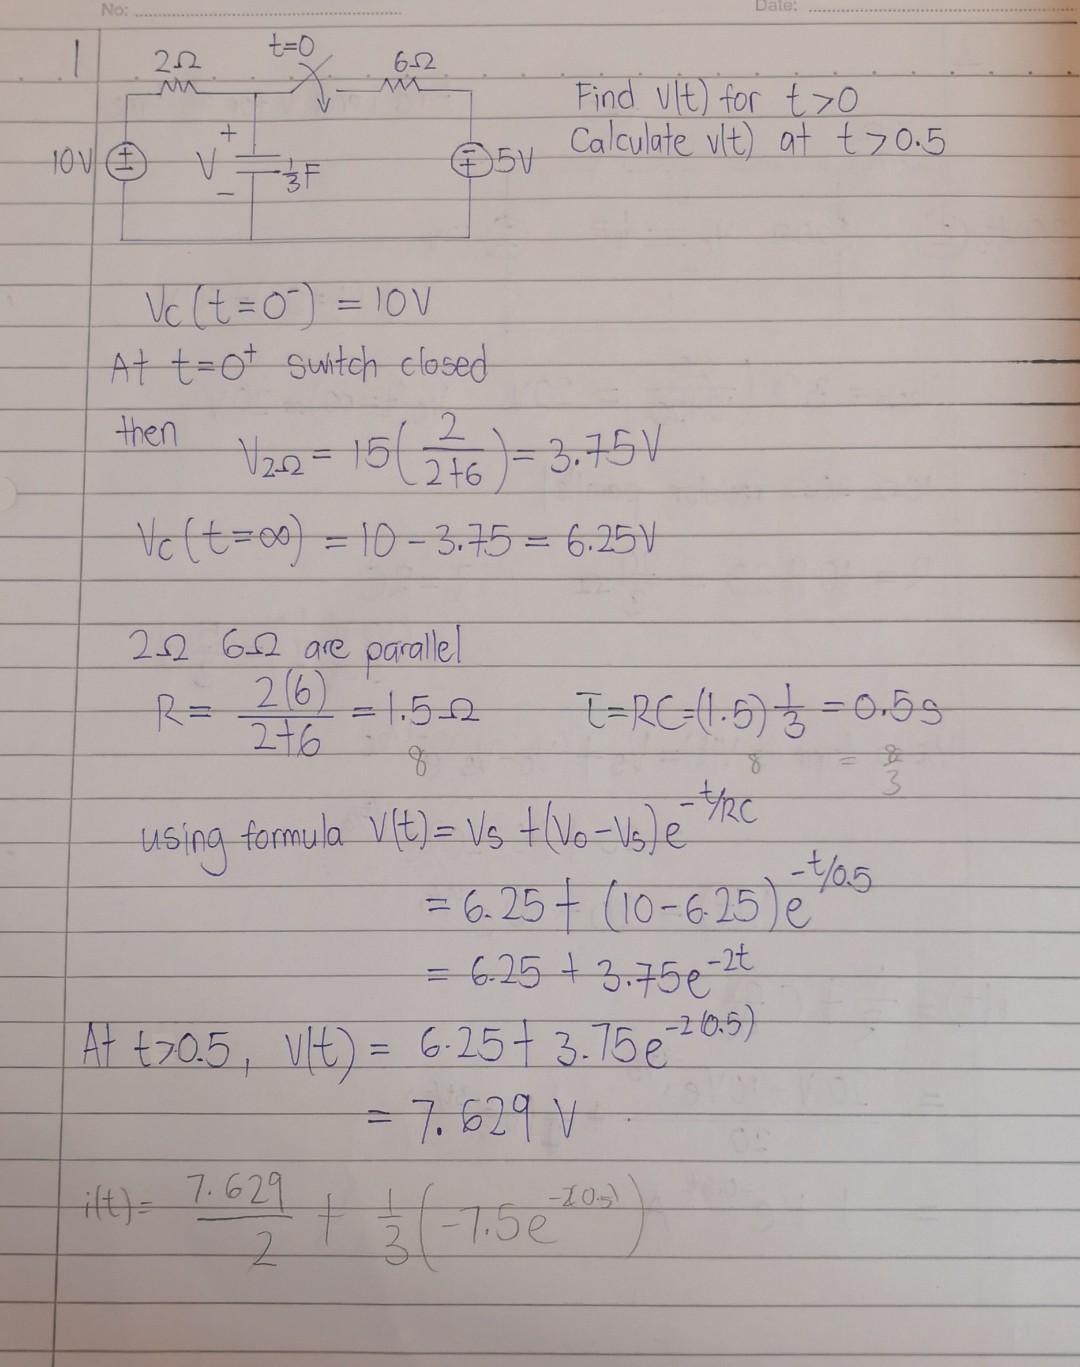 No:
Date:
1
2Ω t=0 6Ω
Find v(t) for t>0
Calculate v(t) at t>0.5
10V ± + V − 1/3F ∓ 5V
Vc(t=0⁻) = 10V
At t=0⁺ switch closed
then V2Ω = 15(2/(2+6)) = 3.75V
Vc(t=∞) = 10 − 3.75 = 6.25V
2Ω 6Ω are parallel
R = 2(6)/(2+6) = 1.5Ω τ=RC=(1.5)1/3 = 0.5s
8 8 = 8/3
using formula V(t) = Vs +(Vo−Vs)e^(−t/RC)
= 6.25 + (10−6.25)e^(−t/0.5)
= 6.25 + 3.75e^(−2t)
At t>0.5, V(t) = 6.25 + 3.75e^(−2(0.5))
= 7.629 V
i(t) = 7.629/2 + 1/3(−7.5e^(−2(0.5)))